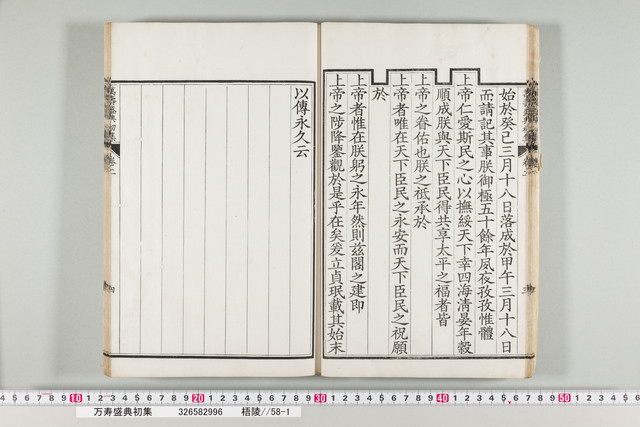 始於癸巳三月十八日落成於甲午三月十八日
而請記其事朕御極五十餘年夙夜孜孜惟體
上帝仁愛斯民之心以撫綏天下幸四海清晏年穀
順成朕與天下臣民得共享太平之福者皆
上帝之眷佑也朕之祗承於
上帝者唯在天下臣民之永安而天下臣民之祝願
於
上帝者惟在朕躬之永年然則茲閣之建即
上帝之陟降鑒觀於是乎在矣爰立貞珉載其始末
以傳永久云
10 20 30 40 50
万寿盛典初集 326582996 梧陵//58-1